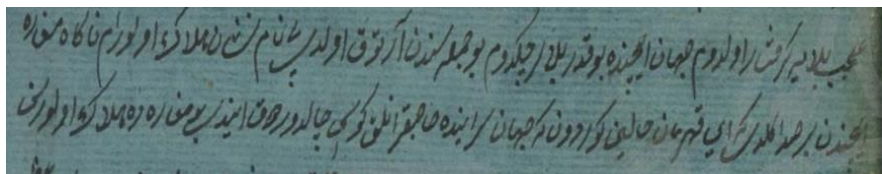 عجب بلایه گرفتار اولدوم جهان ایچنده بو قدر بلالر چکدوم بو جمله سندن آرتوق اولدی بی نام نشان هلاک اولورام ناکاه مغاره
ایچندن بر صدا کلدی کی ای قهرمان حالین کوردون که جهان سراینده صاحبقرانلق کوسی چالدوردوق ایندی بو مغاره ده هلاک اولورسن